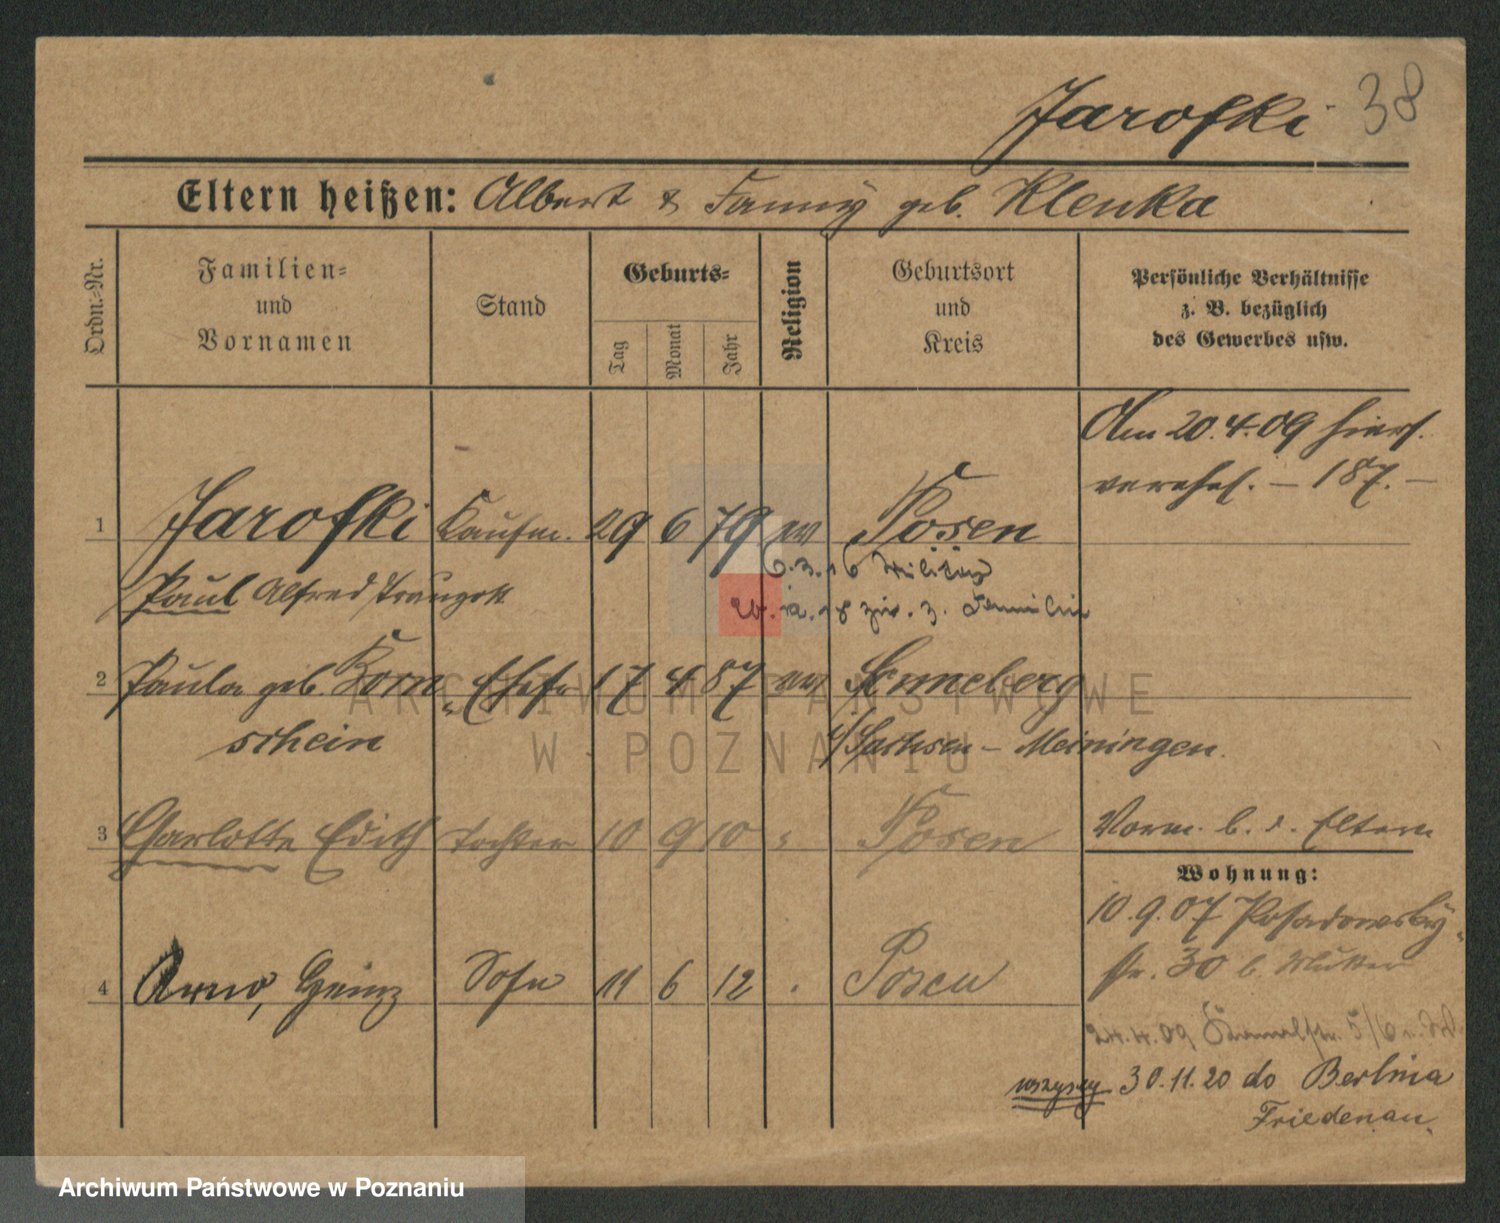 Jarofki 38
Eltern heißen: Albert & Fanny geb. Klenka
Ordn.=Nr.
Familien=
und
Vornamen
Stand
Geburts=
Tag
Monat
Jahr
Religion
Geburtsort
und
Kreis
Persönliche Verhältnisse
z. B. bezüglich
des Gewerbes usw.
Am 20.4.09 hiers.
verehel. – 187. –
1 Jarofki Kaufm. 29 6 79 ev Posen
6.3.16 Militär
Paul Alfred Traugott
z. Familie
2 Paula geb. Korn Ehefr 17 4 87 ev Sonneberg
schein
i/Sachsen – Meiningen.
3 Charlotte Edith Tochter 10 9 10 " Posen
Vorm. b. d. Eltern
Wohnung:
10.9.07 Posadowsky
str. 30 b. Mutter
4 Arno, Heinz Sohn 11 6 12 . Posen
24.4.09 5/6
wszyscy 30.11.20 do Berlina
Friedenau.
ARCHIWUM PAŃSTWOWE
W POZNANIU
Archiwum Państwowe w Poznaniu